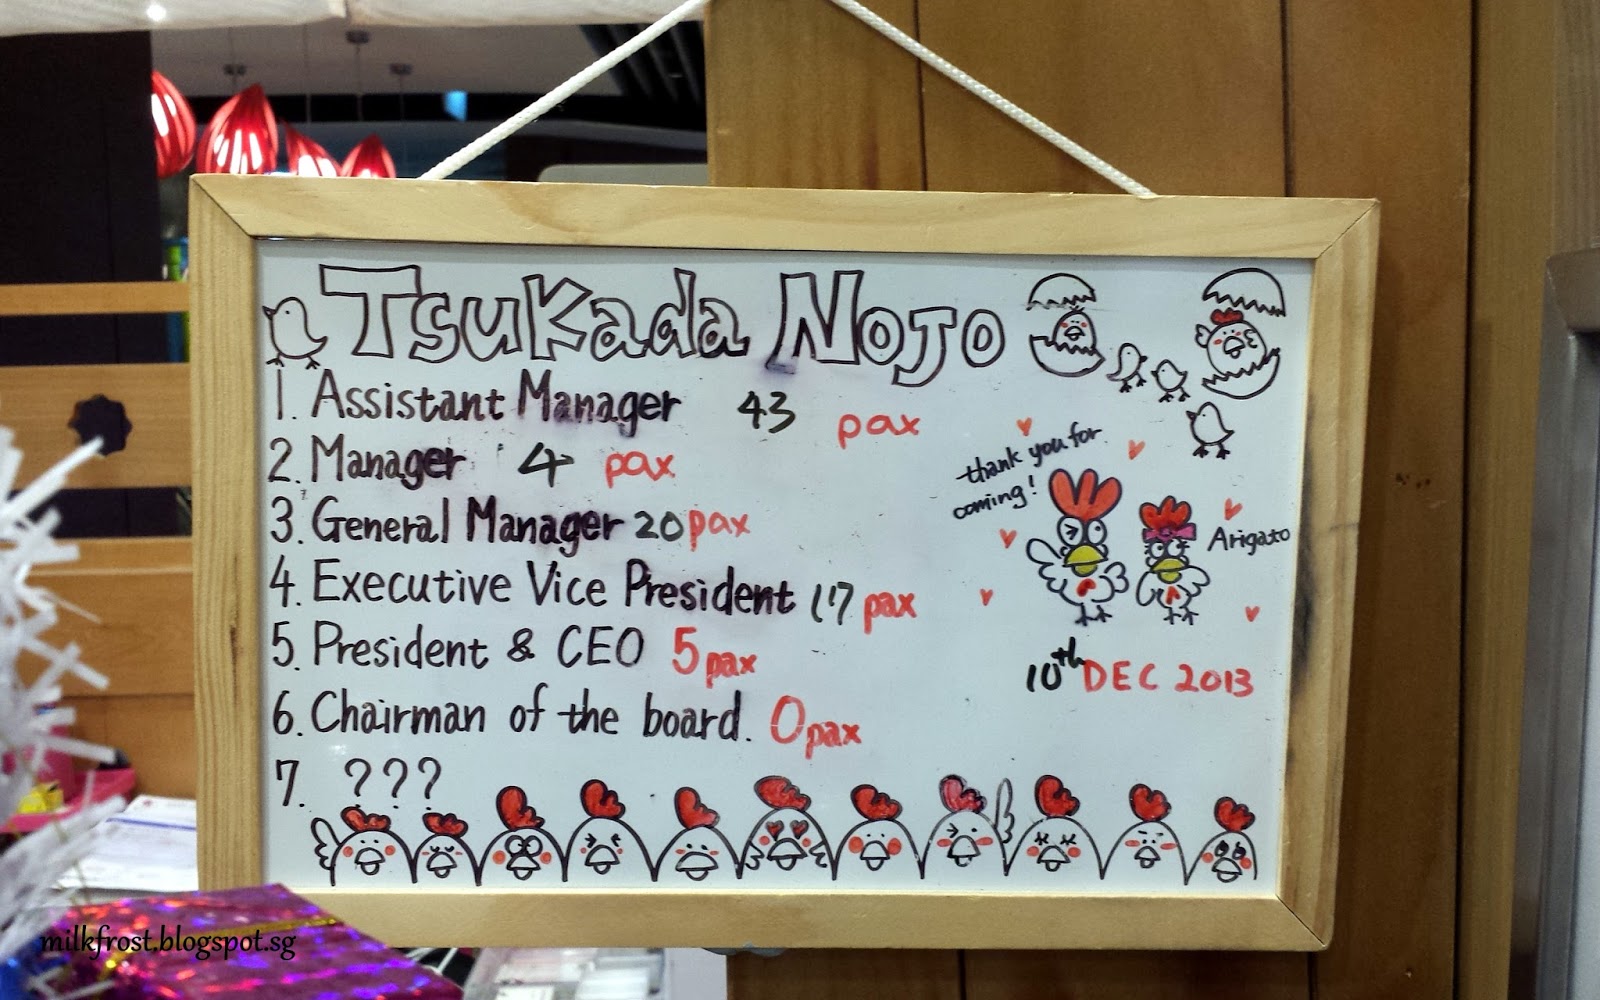 Tsukada Nojo
1. Assistant Manager 43 pax
2. Manager 4 pax
3. General Manager 20 pax
4. Executive Vice President 17 pax
5. President & CEO 5 pax
6. Chairman of the board. 0 pax
7. ???
thank you for
coming!
Arigato
10th DEC 2013
milkfrost.blogspot.sg